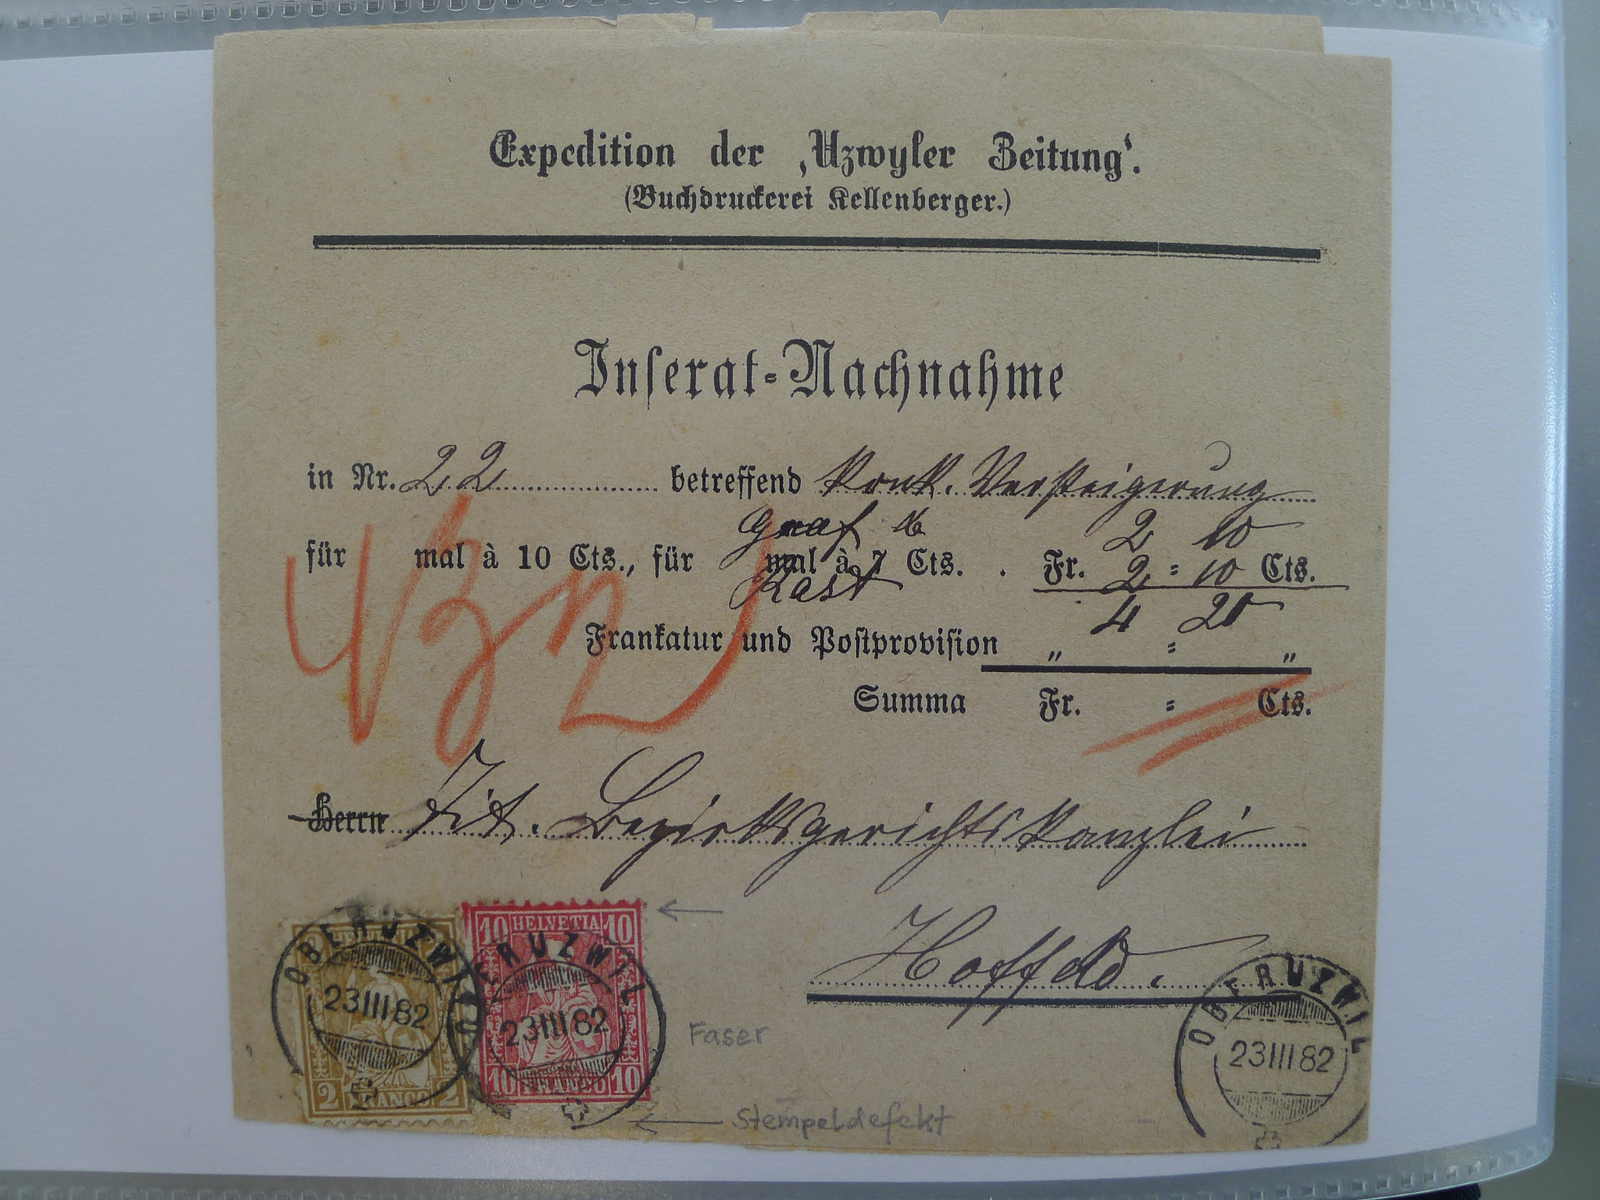 Expedition der ‚Uzwyler Zeitung‘.
(Buchdruckerei Kellenberger.)
Inserat-Nachnahme
in Nr. 22 betreffend Konk. Versteigerung
Graf & 2 10
für mal à 10 Cts., für mal à 7 Cts. . Fr. 2 = 10 Cts.
Rast
4 20
Frankatur und Postprovision „ = „
Summa Fr. = Cts.
Herrn Tit. Bezirksgerichtskanzlei
Hoffeld.
OBERUZWIL
23 III 82
2 FRANCO 2
10 HELVETIA 10
OBERUZWIL
23 III 82
10 FRANCO 10
Faser
Stempeldefekt
OBERUZWIL
23 III 82